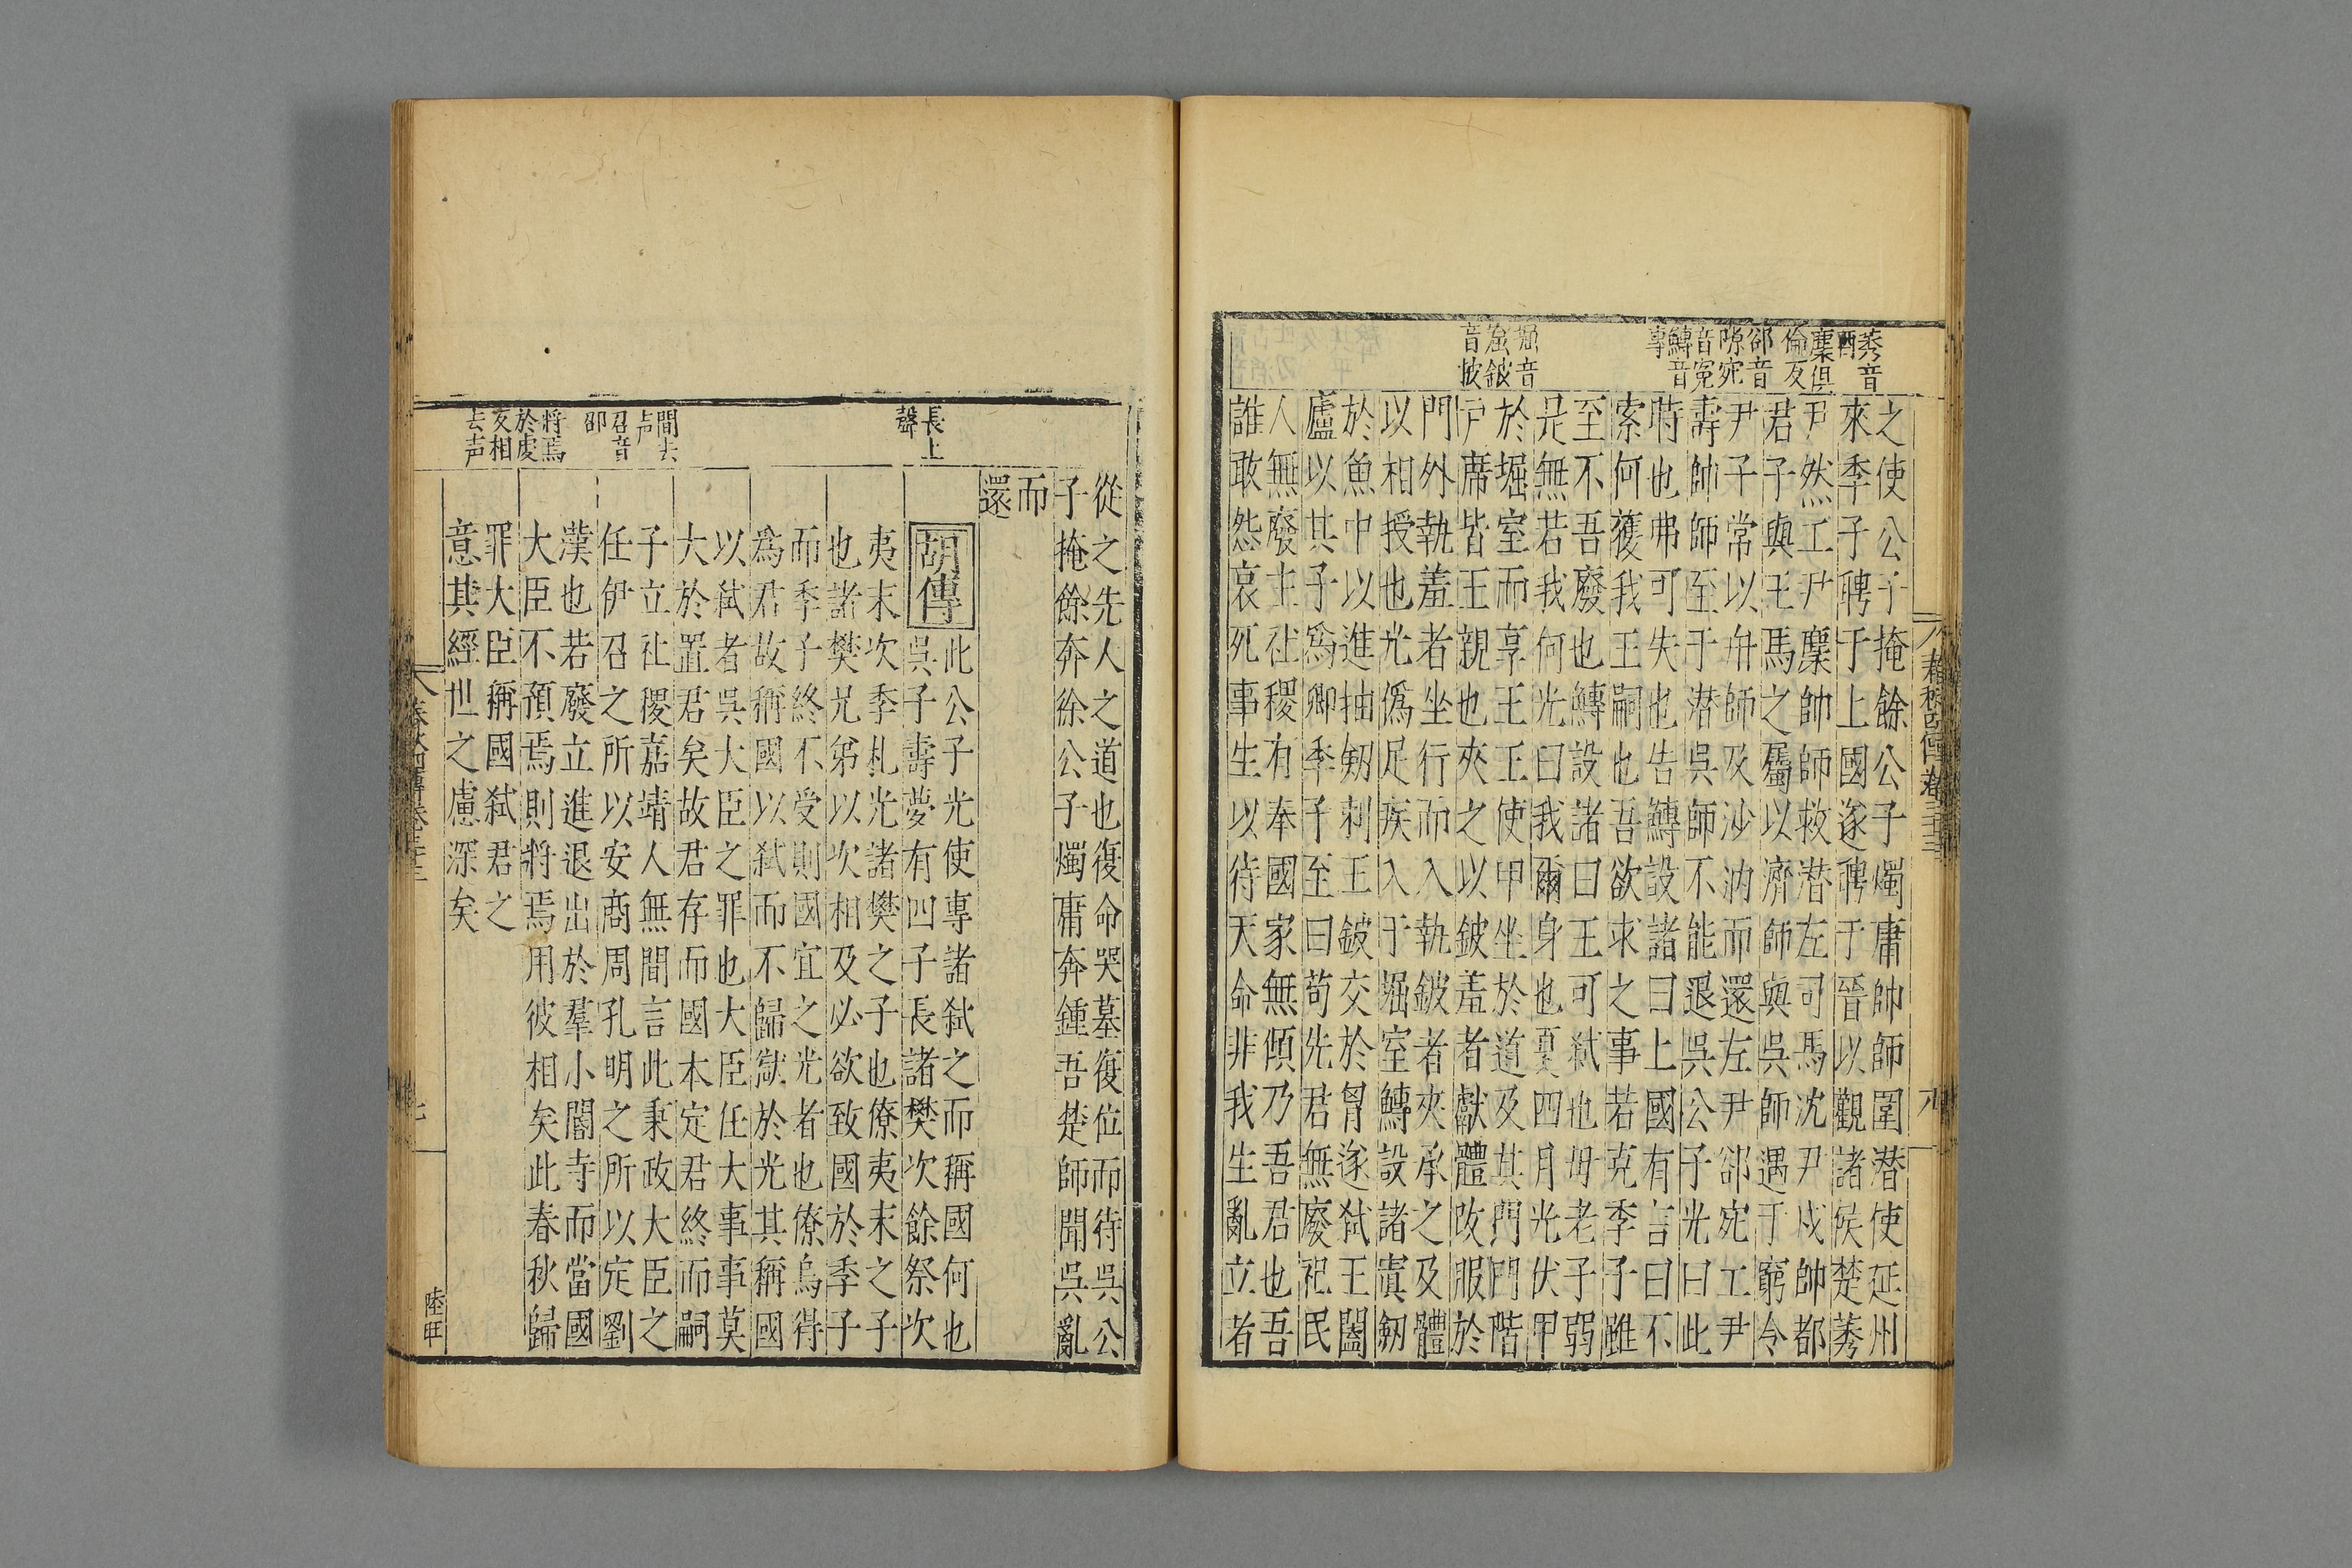 莠音
酉
麇俱
倫反
郤音
隙宛
音寃
鱄音
專
堀音
窟鈹
音披
之使公子掩餘公子燭庸帥師圍潜使延州
來季子聘于上國遂聘于晉以觀諸侯楚莠
尹然工尹麇帥師救潜左司馬沈尹戌帥都
君子與王馬之屬以濟師與吳師遇于窮令
尹子常以舟師及沙汭而還左尹郤宛工尹
壽帥師至于潜吳師不能退吳公子光曰此
時也弗可失也告鱄設諸曰上國有言曰不
索何獲我王嗣也吾欲求之事若克季子雖
至不吾廢也鱄設諸曰王可弒也母老子弱
是無若我何光曰我爾身也夏四月光伏甲
於堀室而享王王使甲坐於道及其門門階
戶席皆王親也夾之以鈹羞者獻體改服於
門外執羞者坐行而入執鈹者夾承之及體
以相授也光僞足疾入于堀室鱄設諸寘劒
於魚中以進抽劒刺王鈹交於胷遂弒王闔
廬以其子爲卿季子至曰苟先君無廢祀民
人無廢主社稷有奉國家無傾乃吾君也吾
誰敢怨哀死事生以待天命非我生亂立者
長上
聲
間去
声
召音
邵
將焉
於虔
反相
去声
從之先人之道也復命哭墓復位而待吳公
子掩餘奔徐公子燭庸奔鍾吾楚師聞吳亂
而
還
胡傳
此公子光使專諸弒之而稱國何也
吳子壽夢有四子長諸樊次餘祭次
夷末次季札光諸樊之子也僚夷末之子
也諸樊兄弟以次相及必欲致國於季子
而季子終不受則國宜之光者也僚烏得
爲君故稱國以弒而不歸獄於光其稱國
以弒者吳大臣之罪也大臣任大事事莫
大於置君矣故君存而國本定君終而嗣
子立社稷嘉靖人無間言此秉政大臣之
任伊召之所以安商周孔明之所以定劉
漢也若廢立進退出於羣小閽寺而當國
大臣不預焉則將焉用彼相矣此春秋歸
罪大臣稱國弒君之
意其經世之慮深矣
春秋四傳卷三十三